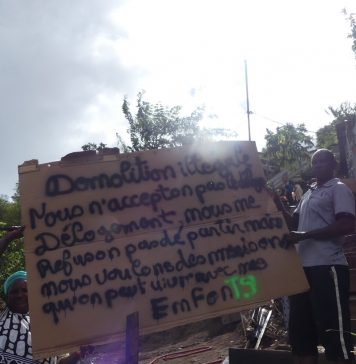 Demolition illegale
Nous n'accepton pas le
Délogement. nous me
Refuson pas dé partir mais
nous voulons des maisons
qu'on peut vivr avec mes
EnFenTS